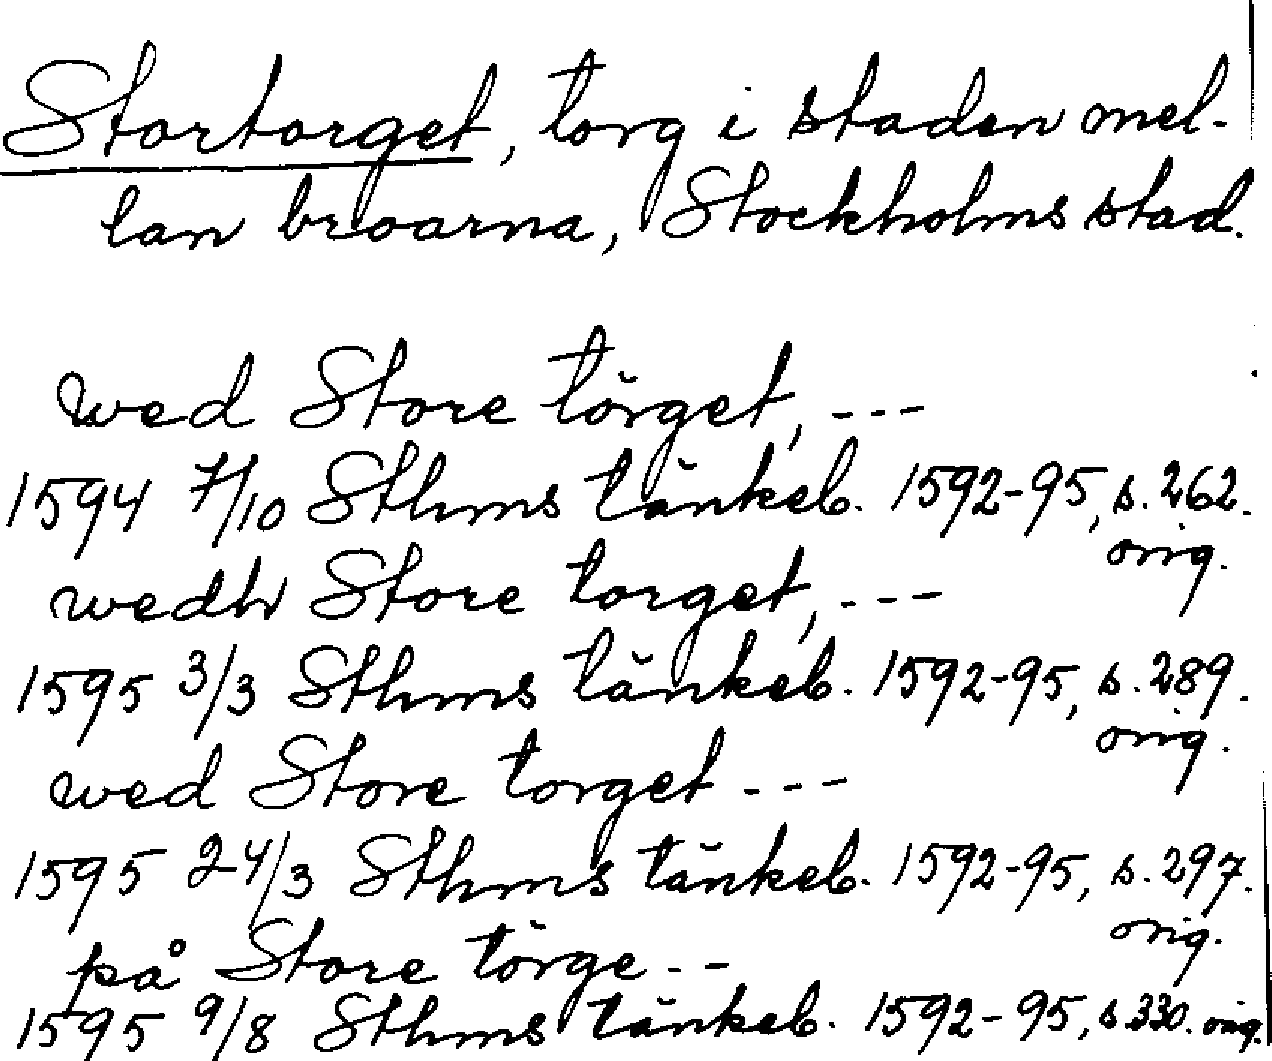 Stortorget, torg i staden mel-
lan broarna, Stockholms stad.
wed Store törget, ---
1594 7/10 Sthms tänkeb. 1592-95, s. 262.
orig.
wedh Store torget, ---
1595 3/3 Sthms tänkeb. 1592-95, s. 289.
orig.
wed Store torget ---
1595 24/3 Sthms tänkeb. 1592-95, s. 297.
orig.
på Store törge --
1595 9/8 Sthms tänkeb. 1592-95, s 330. orig.